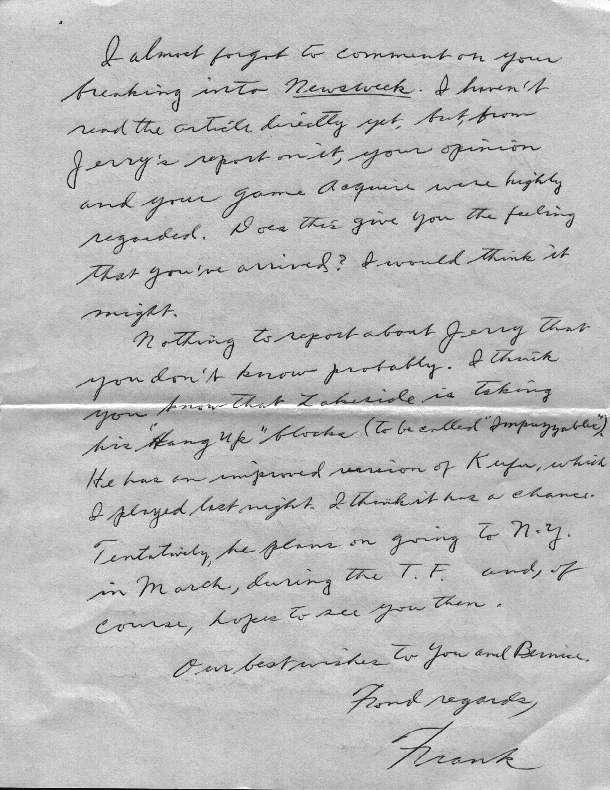 I almost forgot to comment on your
breaking into Newsweek. I haven't
read the article directly yet, but, from
Jerry's report on it, your opinion
and your game Acquire were highly
regarded. Does this give you the feeling
that you've arrived? I would think it
might.
Nothing to report about Jerry that
you don't know probably. I think
you know that Lakeside is taking
his "Hang Up" blocks (to be called "Impuzzables").
He has an improved version of Kufu, which
I played last night. I think it has a chance.
Tentatively, he plans on going to N.Y.
in March, during the T.F. and, of
course, hopes to see you then.
Our best wishes to You and Bernice.
Fond regards,
Frank